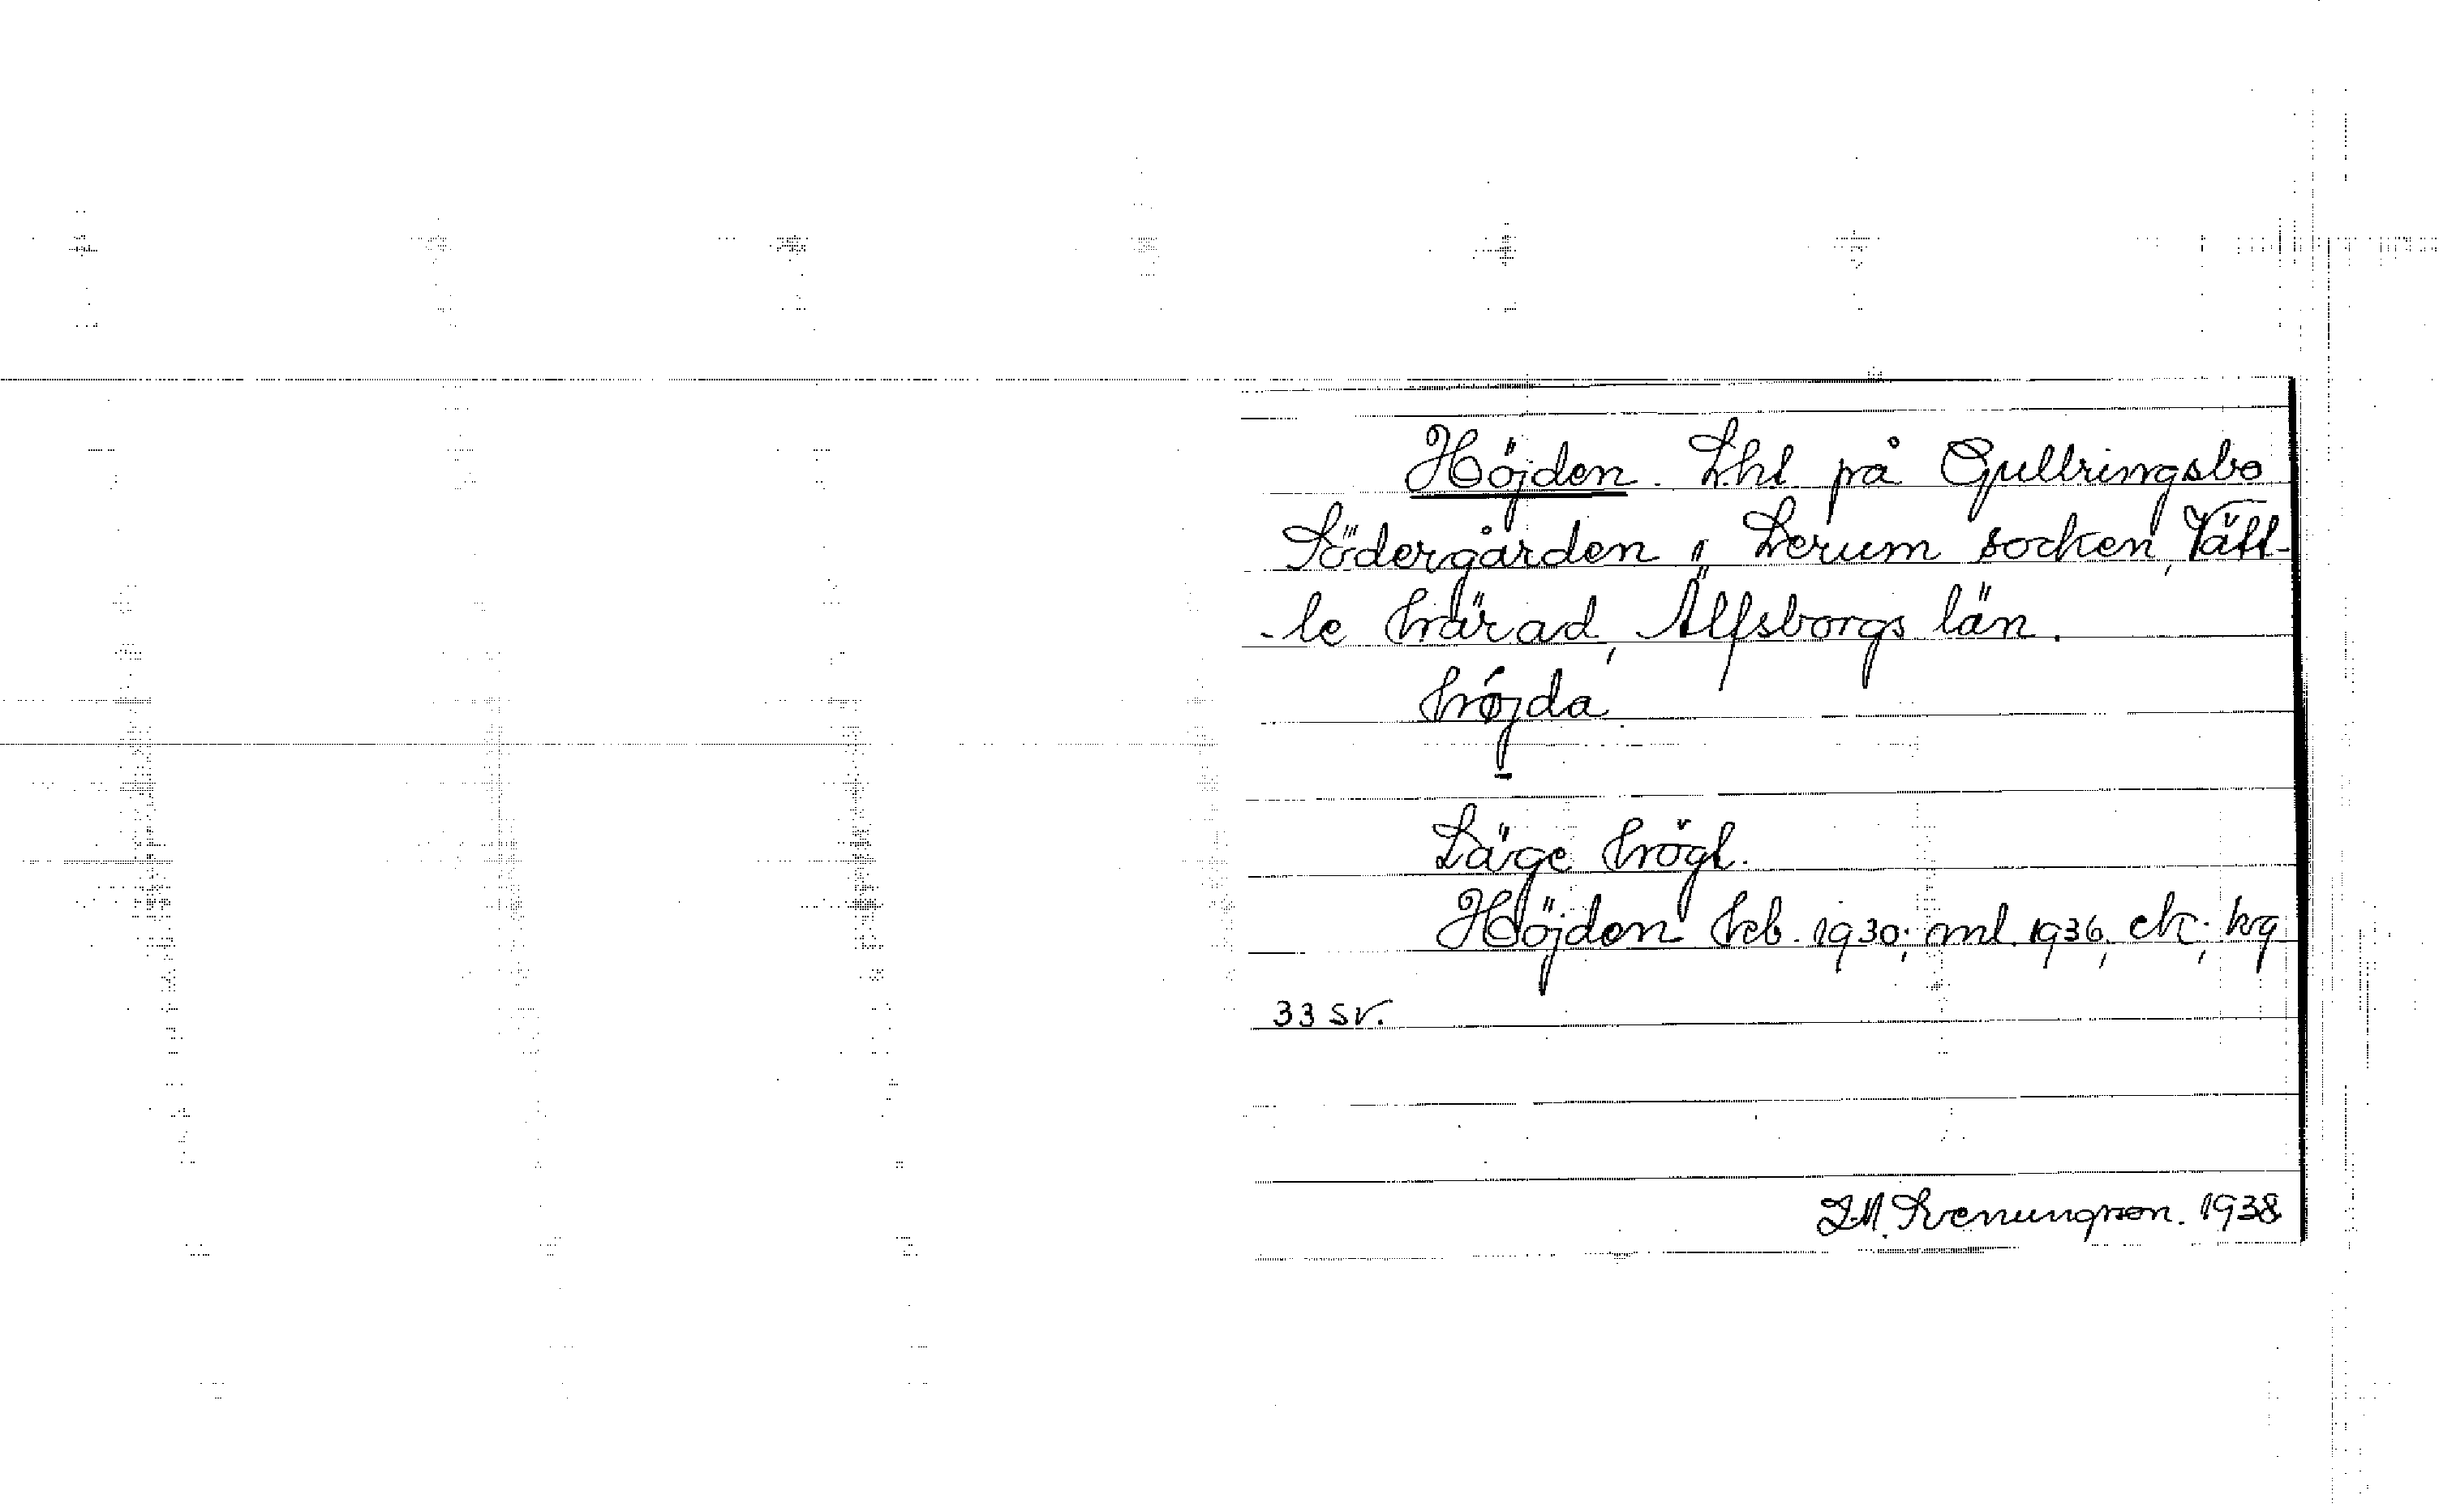 Höjden. Lht på Gullringsbo
Södergården, Lerum socken, Vätt-
-le härad, Älfsborgs län.
hǿjda
Läge högt.
Höjden hcb. 1930; ml. 1936, ek; kg
33 SV.
I.M. Svenungson. 1938